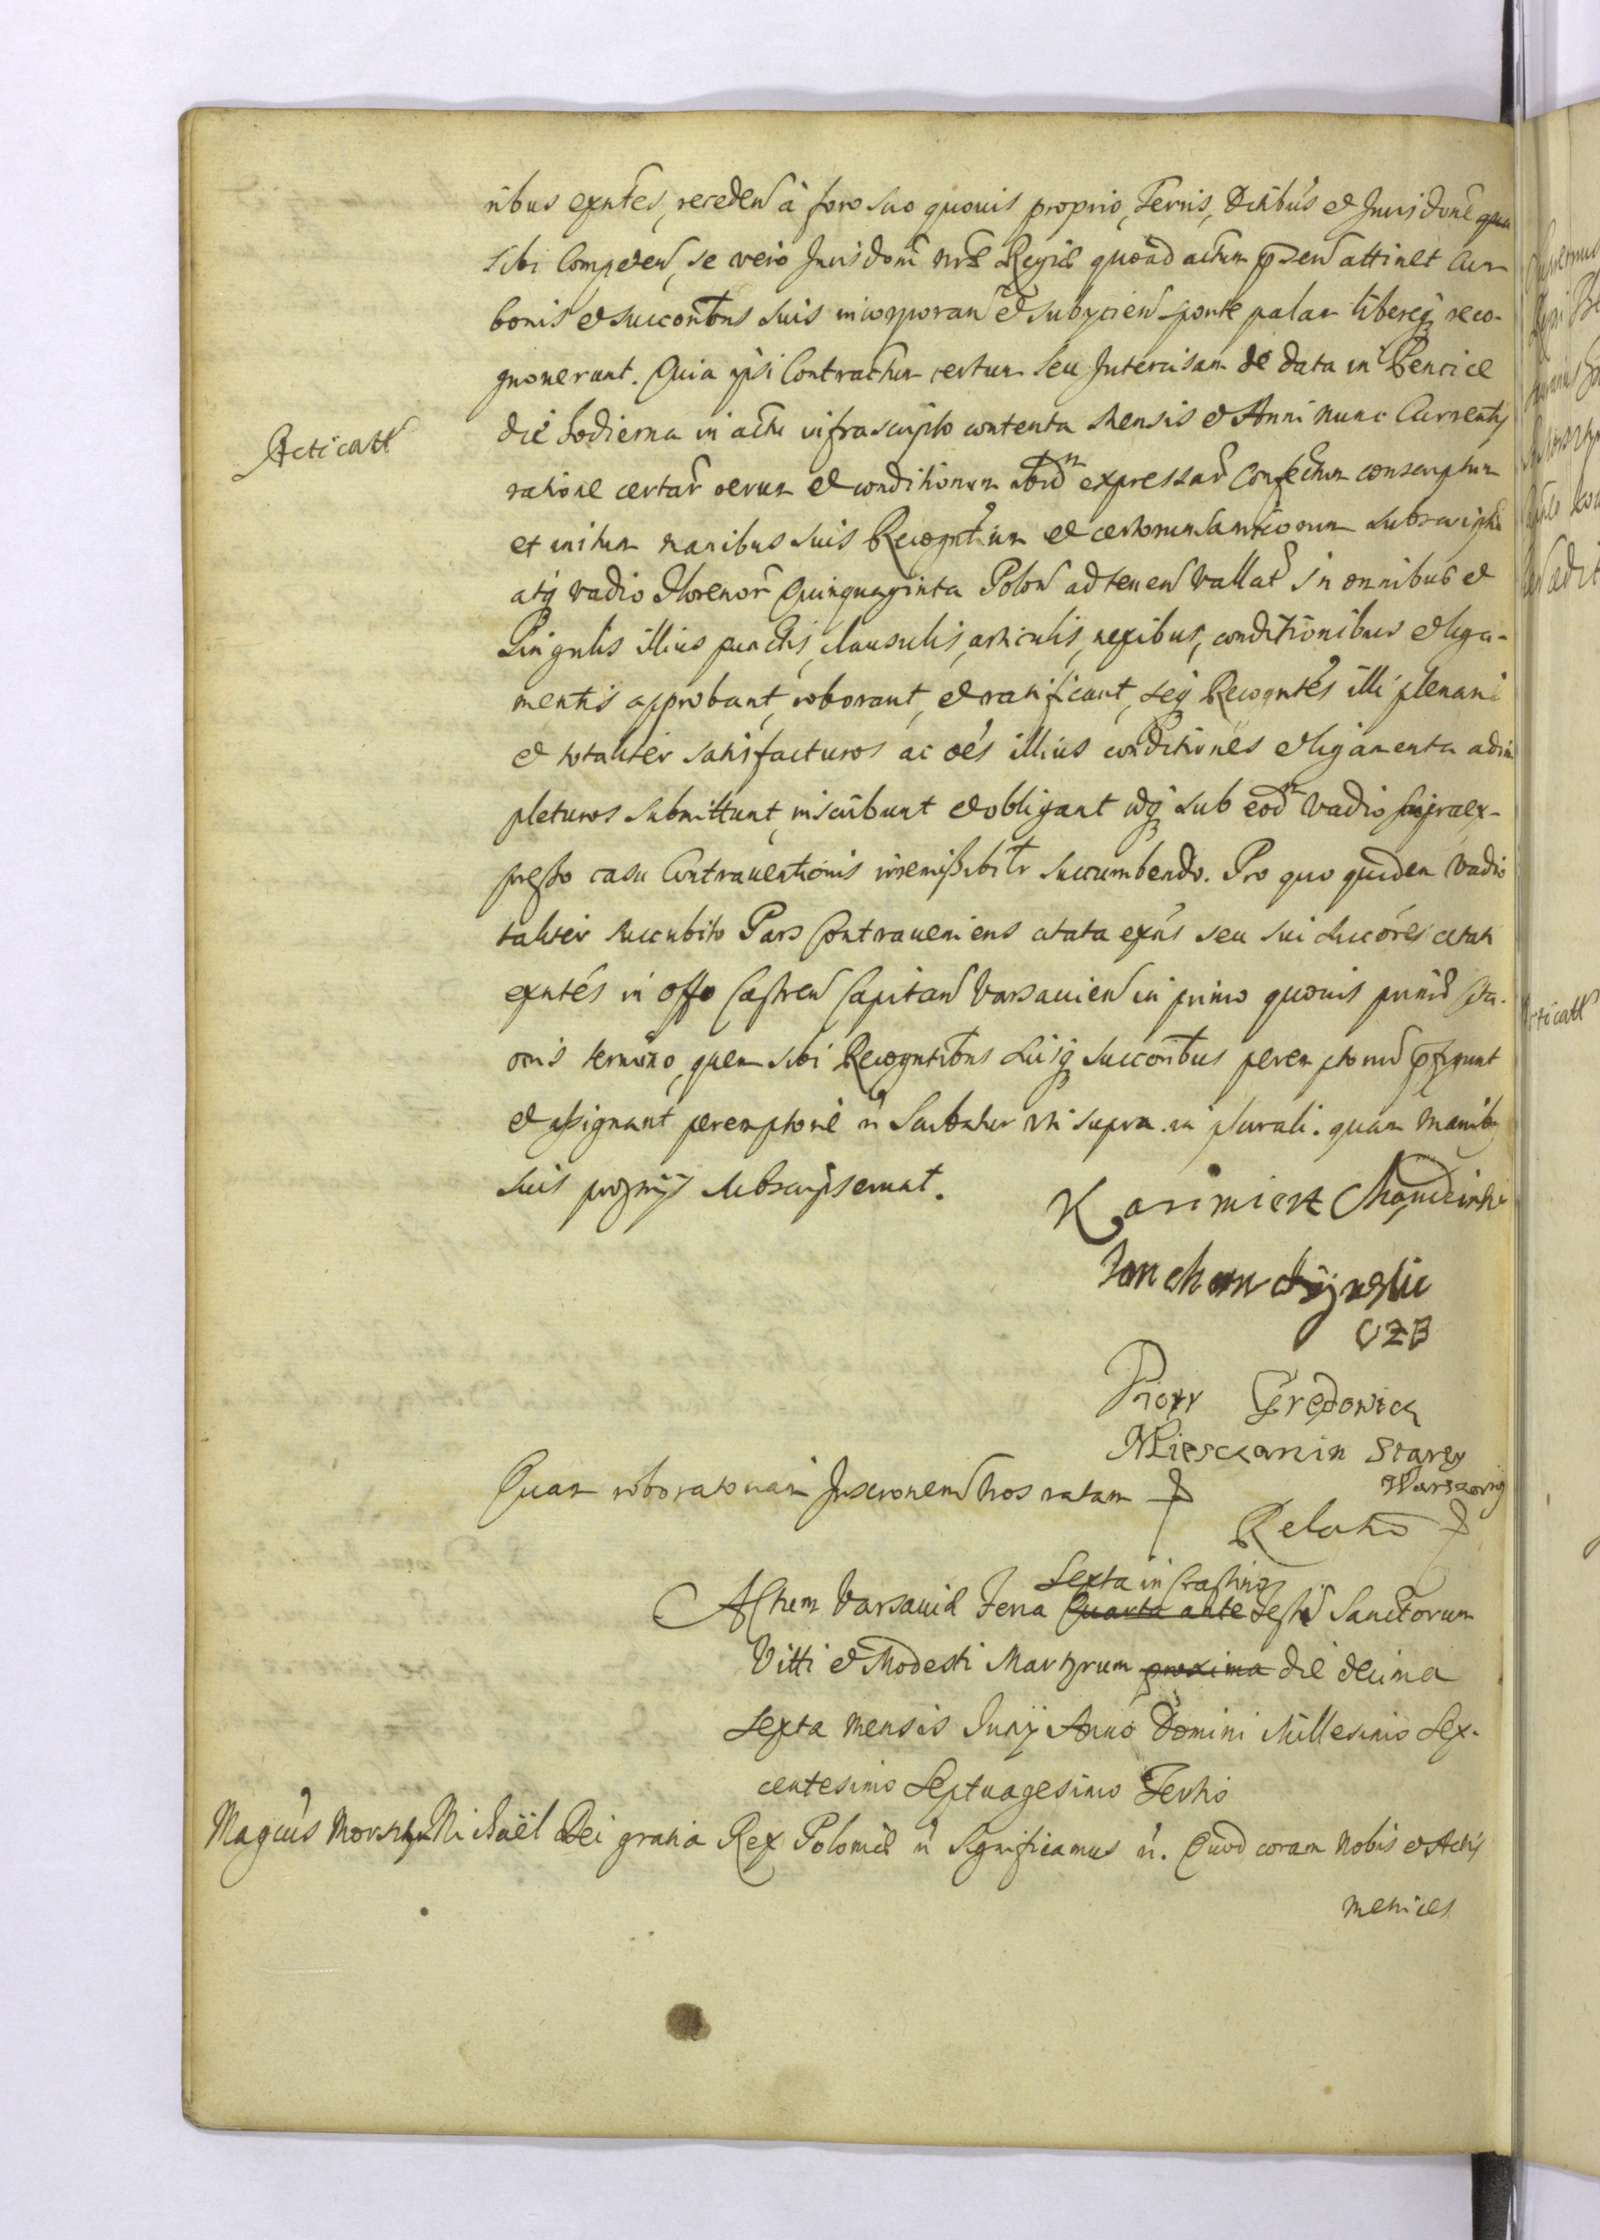 ribus exntes, receden à foro suo quouis proprio, Terris, Dctibus et Jurisdone qua
sibi Competen, se vero Jurisdom nrae Regiae quoad actum pnsen attinet cum
bonis et succoribus suis incorporan et subycien sponte palam libereq reco-
gnouerunt. Quia ipsi Contractum certum seu Intercisam de data in
Acticatt
die hodierna in actu infrascripto contenta Mensis et Anni nunc Currentis
ratione certar rerum et conditionum ibidm expressar Confectum conscriptum
et initum manibus suis Recogntium et subscriptum
atq vadio Florenor Quinquaginta Polon adtenen vallat in omnibus et
Singulis illius punctis, clausulis, articulis, nexibus, conditionibus et liga-
mentis approbant, roborant, et ratificant, seq Recogntes illi plenarie
et totaliter satisfacturos ac oes illius conditiones et ligamenta adim
pleturos submittunt, inscribunt et obligant idq sub eodm vadio supraex-
presso casu Contrauentionis irremissibilr succumbendo. Pro quo quidem vadio
taliter succubito Pars Contraueniens citata exns seu sui succores citati
exntes in offo Castren Capitan Varsauien in primo quouis primae Cita-
onis termino, quem sibi Recogntibus suisq succoribus peremptorium pfigunt
et assignant peremptorie n Scribatur uti supra in plurali. quam manibus
suis proprijs subscripserunt.
Kazimierz
Jan
CZB
Piotr Gredowicz
Miesczanin Starey
Warszawy
Quam roboratoriam Inscronem hos ratam
Relatio
Sexta in Crastino
Actum Varsauiae Feria Quarta ante Festi Sanctorum
Vitti et Modesti Martyrum proxima die decima
sexta mensis Junij Anno Domini Millesimo Sex-
centesimo Septuagesimo Tertio
Michaël Dei gratia Rex Poloniae n Significamus n. Quod coram Nobis et Actis